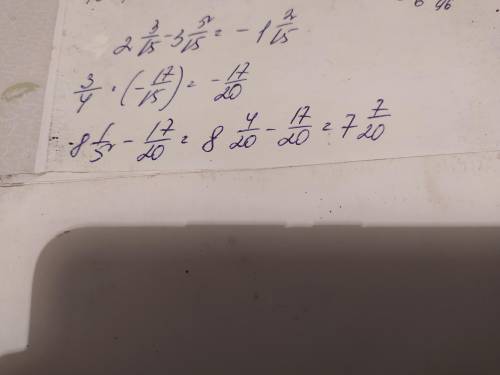 2 3/15 - 3 5/15 = - 1 2/15
3/4 · (- 17/15) = - 17/20
8 1/5 - 17/20 = 8 4/20 - 17/20 = 7 7/20